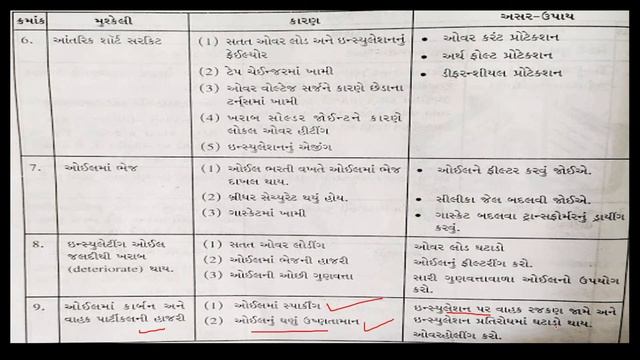 ક્રમાંક મુશ્કેલી કારણ અસર-ઉપાય
6. આંતરિક શૉર્ટ સરકિટ (1) સતત ઓવર લોડ અને ઇન્સ્યુલેશનનું • ઓવર કરંટ પ્રોટેક્શન
ફેઈલ્યોર • અર્થ ફોલ્ટ પ્રોટેક્શન
(2) ટેપ ચેઈન્જરમાં ખામી • ડીફરન્શીયલ પ્રોટેક્શન
(3) ઓવર વોલ્ટેજ સર્જને કારણે છેડાના
ટર્નસમાં ખામી
(4) ખરાબ સોલ્ડર જોઈન્ટને કારણે
લોકલ ઓવર હીટીંગ
(5) ઇન્સ્યુલેશનનું એજીંગ
7. ઓઈલમાં ભેજ (1) ઓઈલ ભરતી વખતે ઓઈલમાં ભેજ • ઓઈલને ફિલ્ટર કરવું જોઈએ.
દાખલ થાય.
(2) બ્રીધર સેચ્યુરેટ થયું હોય. • સીલીકા જેલ બદલવી જોઈએ.
(3) ગાસ્કેટમાં ખામી • ગાસ્કેટ બદલવા ટ્રાન્સફોર્મરનું ડ્રાયીંગ
કરવું.
8. ઇન્સ્યુલેટીંગ ઓઈલ (1) સતત ઓવર લોડીંગ ઓવર લોડ ઘટાડો
જલદીથી ખરાબ (2) ઓઈલમાં ભેજની હાજરી ઓઈલનું ફીલ્ટરીંગ કરો.
(deteriorate) થાય. (3) ઓઈલની ઓછી ગુણવત્તા સારી ગુણવત્તાવાળા ઓઈલનો ઉપયોગ
કરો.
9. ઓઈલમાં કાર્બન અને (1) ઓઈલમાં સ્પાર્કીંગ ઇન્સ્યુલેશન પર વાહક રજકણ જામે અને
વાહક પાર્ટીકલની હાજરી (2) ઓઈલનું ઘણું ઉષ્ણતામાન ઇન્સ્યુલેશન પ્રતિરોધમાં ઘટાડો થાય.
ઓવરહોલીંગ કરો.